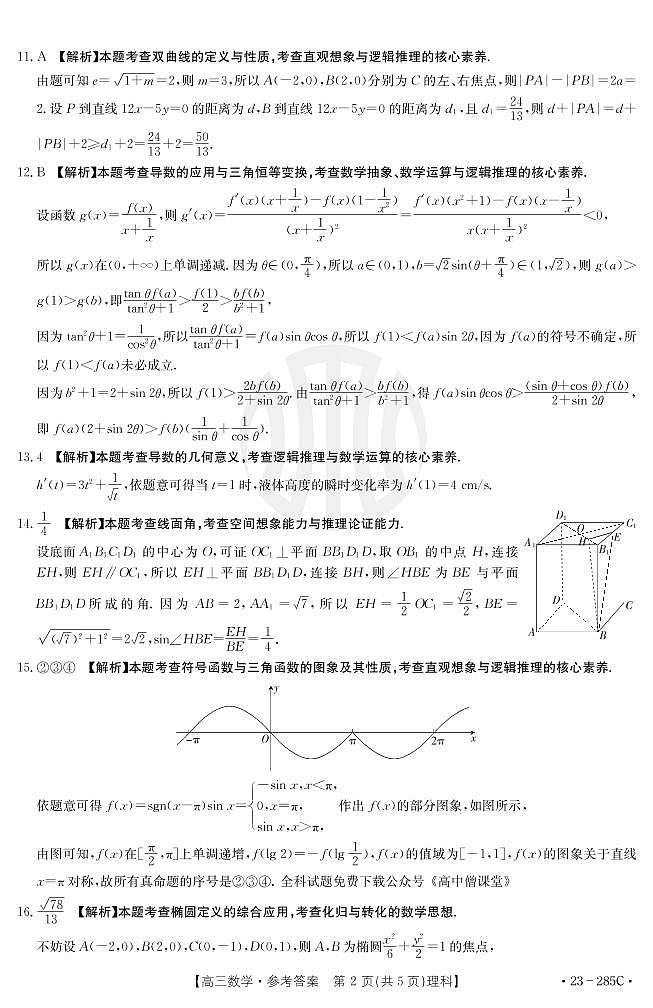 11. A 【解析】本题考查双曲线的定义与性质,考查直观想象与逻辑推理的核心素养.
由题可知 e=√(1+m)=2,则 m=3,所以 A(-2,0),B(2,0)分别为 C 的左、右焦点,则|PA|-|PB|=2a=
2. 设 P 到直线 12x-5y=0 的距离为 d,B 到直线 12x-5y=0 的距离为 d₁,且 d₁=24/13,则 d+|PA|=d+
|PB|+2≥d₁+2=24/13+2=50/13.
12. B 【解析】本题考查导数的应用与三角恒等变换,考查数学抽象、数学运算与逻辑推理的核心素养.
设函数 g(x)=f(x)/(x+1/x),则 g′(x)=[f′(x)(x+1/x)-f(x)(1-1/x²)]/(x+1/x)²=[f′(x)(x²+1)-f(x)(x-1/x)]/[x(x+1/x)²]<0,
所以 g(x)在(0,+∞)上单调递减. 因为 θ∈(0,π/4),所以 a∈(0,1),b=√2sin(θ+π/4)∈(1,√2),则 g(a)>
g(1)>g(b),即 tan θf(a)/(tan²θ+1)>f(1)/2>bf(b)/(b²+1),
因为 tan²θ+1=1/cos²θ,所以 tan θf(a)/(tan²θ+1)=f(a)sin θcos θ,所以 f(1)<f(a)sin 2θ,因为 f(a)的符号不确定,所
以 f(1)<f(a)未必成立.
因为 b²+1=2+sin 2θ,所以 f(1)>2bf(b)/(2+sin 2θ). 由 tan θf(a)/(tan²θ+1)>bf(b)/(b²+1),得 f(a)sin θcos θ>(sin θ+cos θ)f(b)/(2+sin 2θ),
即 f(a)(2+sin 2θ)>f(b)(1/sin θ+1/cos θ).
13. 4 【解析】本题考查导数的几何意义,考查逻辑推理与数学运算的核心素养.
h′(t)=3t²+1/√t,依题意可得当 t=1 时,液体高度的瞬时变化率为 h′(1)=4 cm/s.
14. 1/4 【解析】本题考查线面角,考查空间想象能力与推理论证能力.
设底面 A₁B₁C₁D₁ 的中心为 O,可证 OC₁⊥平面 BB₁D₁D,取 OB₁ 的中点 H,连接
EH,则 EH∥OC₁,所以 EH⊥平面 BB₁D₁D,连接 BH,则∠HBE 为 BE 与平面
BB₁D₁D 所成的角. 因为 AB=2,AA₁=√7,所以 EH=1/2 OC₁=√2/2,BE=
√((√7)²+1²)=2√2,sin∠HBE=EH/BE=1/4.
D₁
C₁
O
E
A₁
H
B₁
D
C
A
B
15. ②③④ 【解析】本题考查符号函数与三角函数的图象及其性质,考查直观想象与逻辑推理的核心素养.
y
-π
O
π
2π
x
依题意可得 f(x)=sgn(x-π)sin x={-sin x,x<π,
0,x=π,
sin x,x>π,
作出 f(x)的部分图象,如图所示,
由图可知,f(x)在[π/2,π]上单调递增,f(lg 2)=-f(lg 1/2),f(x)的值域为[-1,1],f(x)的图象关于直线
x=π 对称,故所有真命题的序号是②③④. 全科试题免费下载公众号《高中僧课堂》
16. √78/13 【解析】本题考查椭圆定义的综合应用,考查化归与转化的数学思想.
不妨设 A(-2,0),B(2,0),C(0,-1),D(0,1),则 A,B 为椭圆 x²/6+y²/2=1 的焦点,
【高三数学·参考答案 第 2 页(共 5 页)理科】
·23-285C·